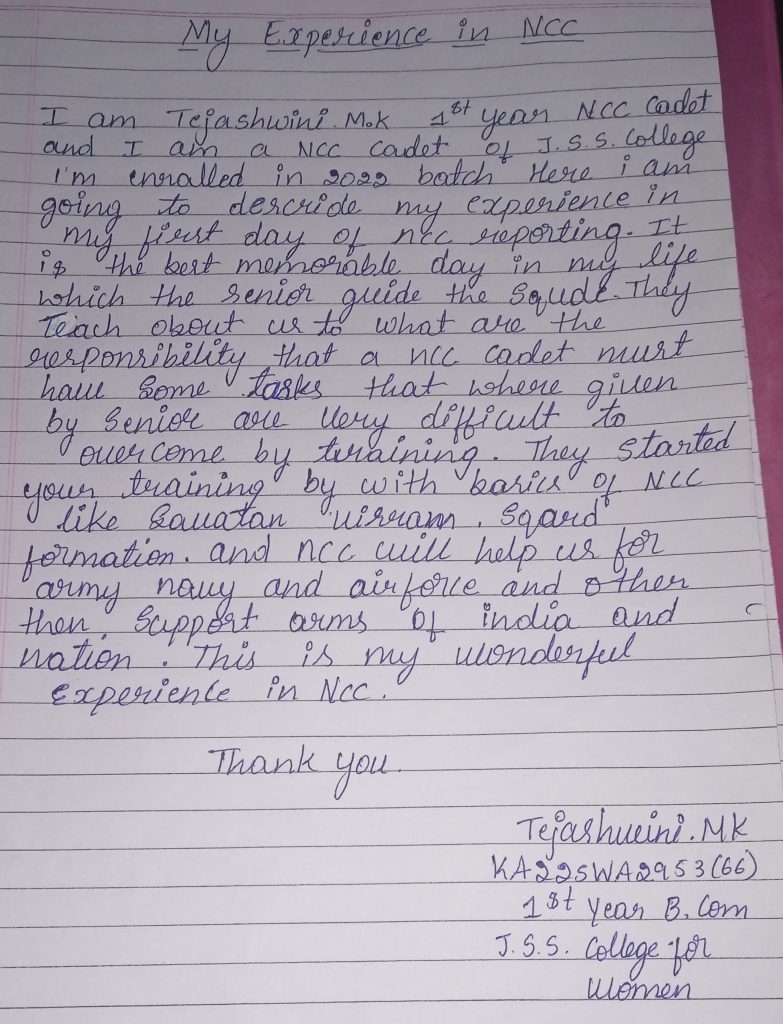 My Experience in NCC
I am Tejashwini. M.k 1st year NCC Cadet
and I am a NCC Cadet of J.S.S. College
I'm enralled in 2022 batch Here i am
going to descride my experience in
my first day of ncc reporting. It
is the best memorable day in my life
which the senior guide the Squde. They
Teach obout us to what are the
responsibility that a ncc cadet must
have some tasks that where given
by Senior are very difficult to
overcome by training. They started
your training by with basics of NCC
like Savatan visram. Sqard
formation. and ncc will help us for
army navy and airforce and other
then. Support arms of india and
nation. This is my wonderful
experience in Ncc.
Thank you.
Tejashwini. MK
KA22SWA2953(66)
1st Year B. Com
J.S.S. College for
Women